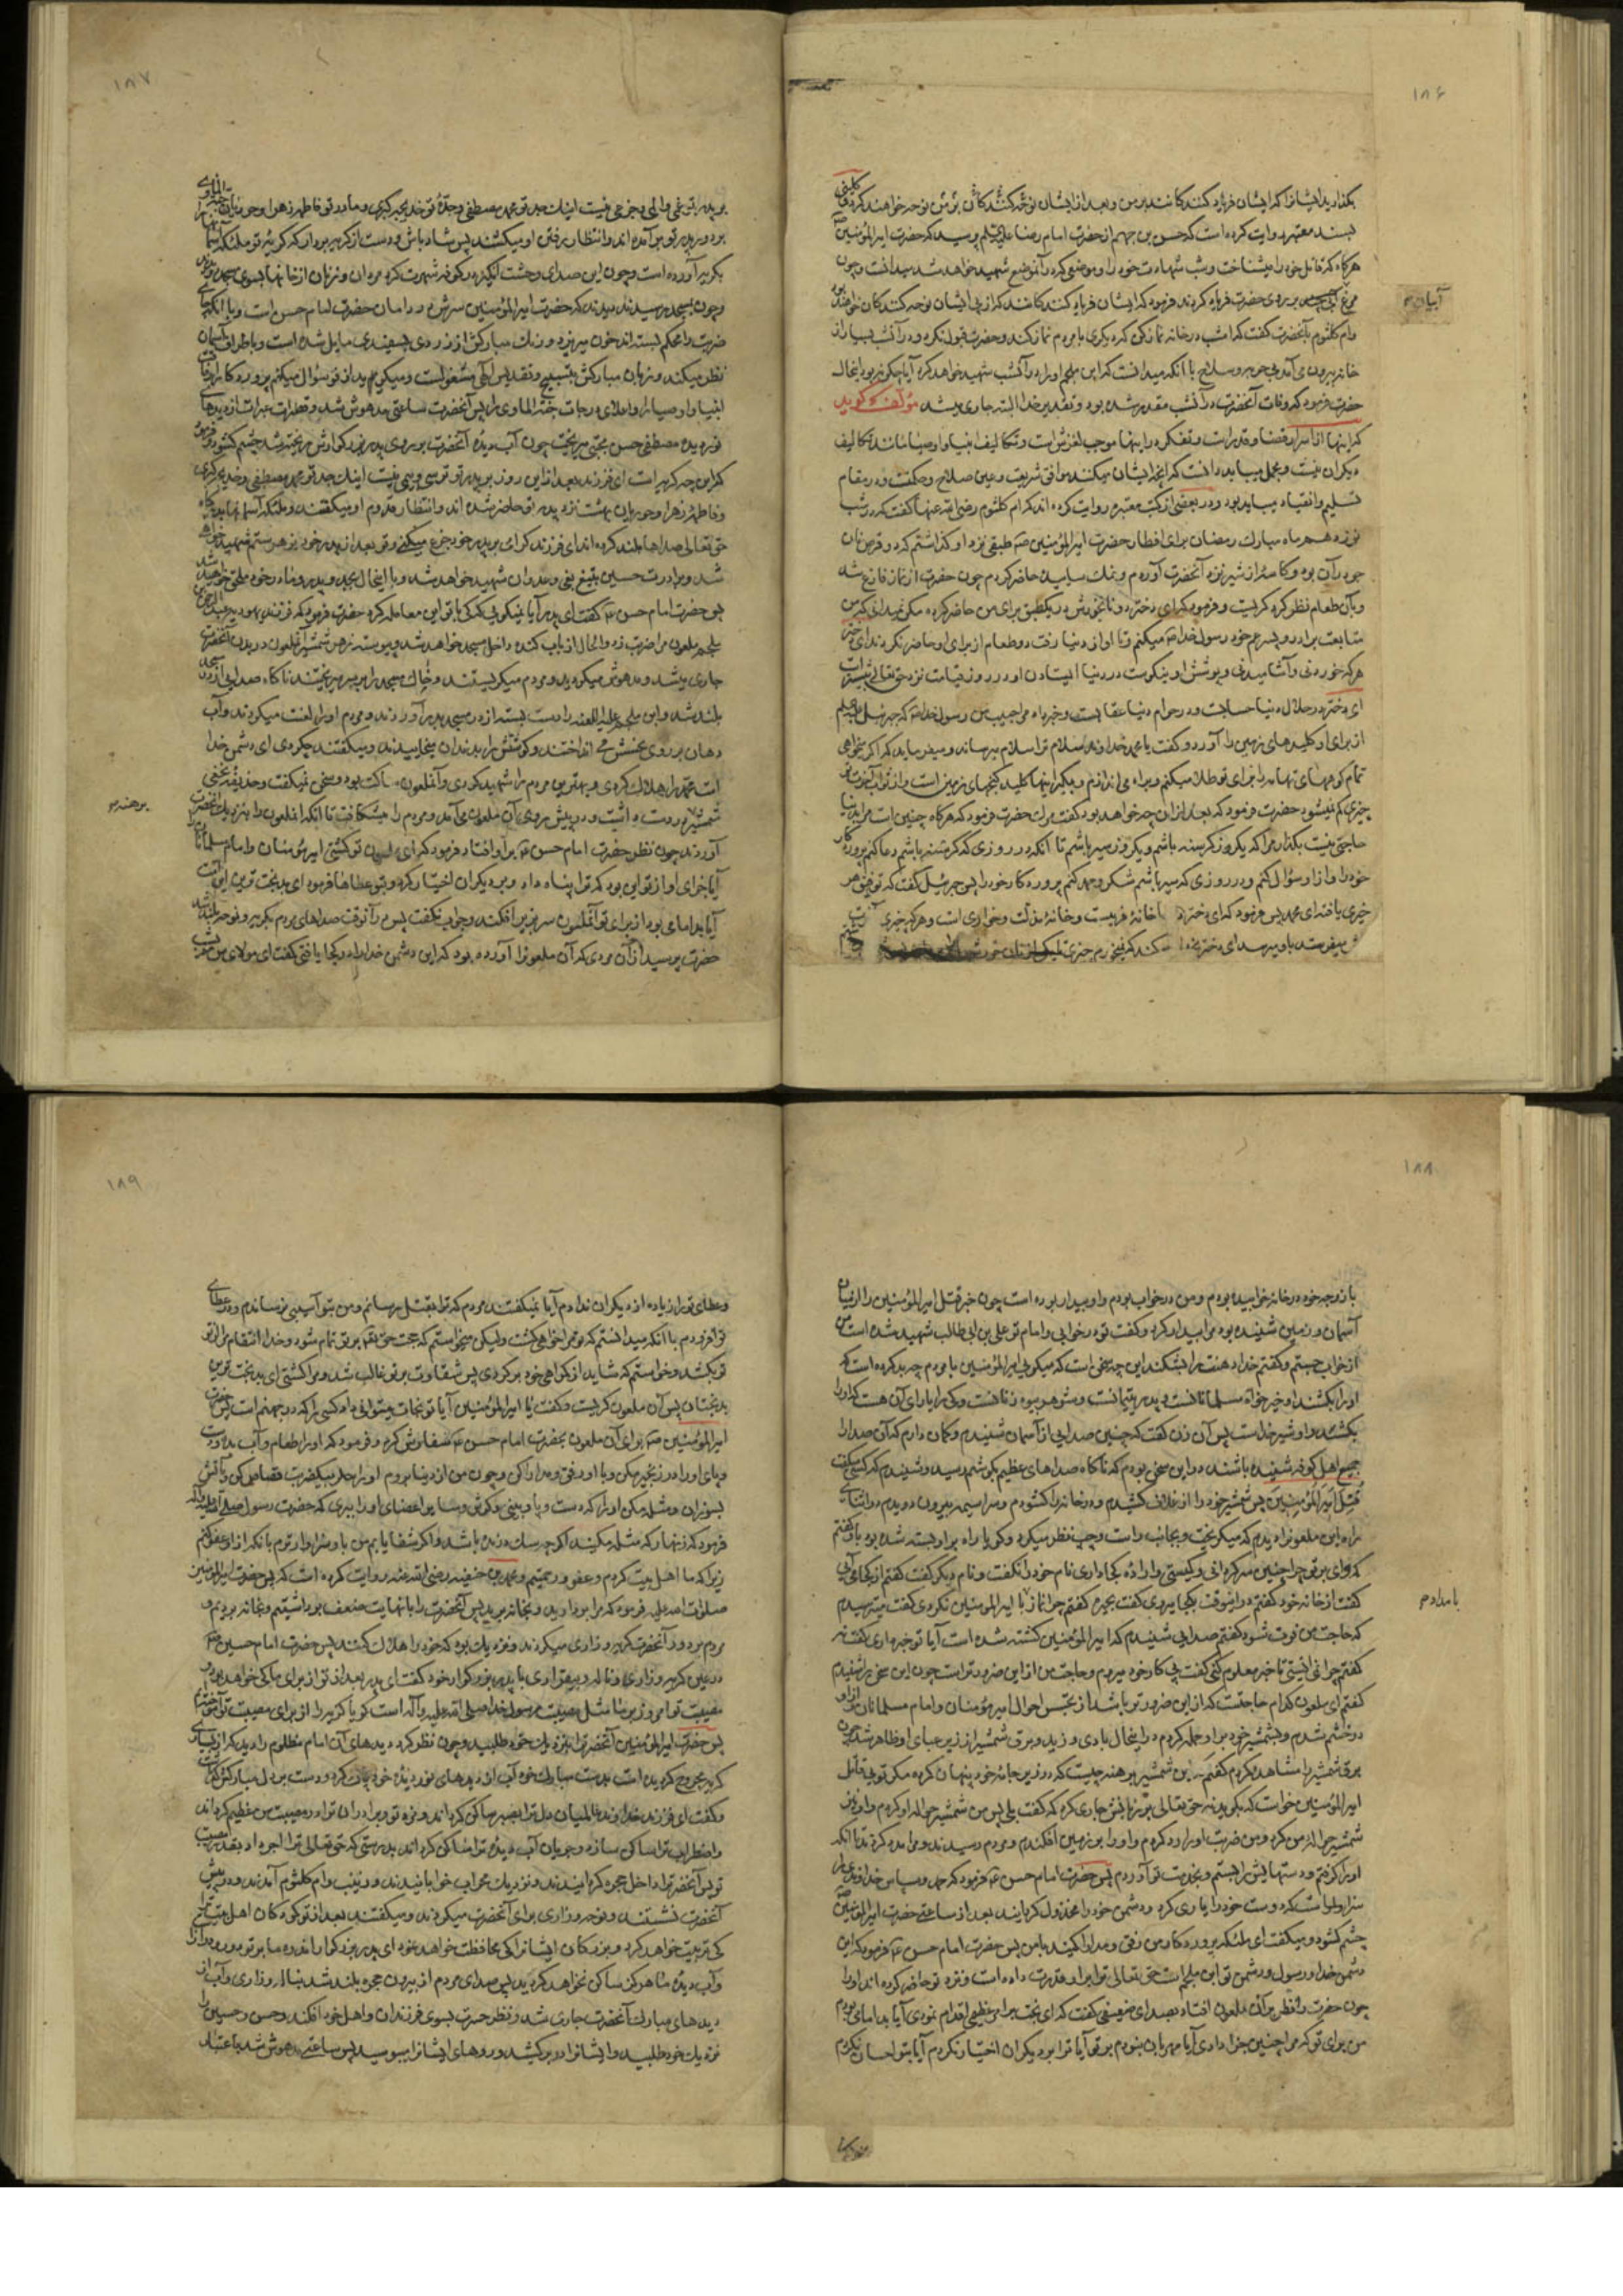 ۱۸۶
بگذارید ایشانرا که ایشان فریاد کنندکانند برمن و بعد از ایشان نوحه کنندکان برمن نوحه خواهند کرد
بسند معتبر روایت کرده است که حسن بن جهم از حضرت امام رضا علیه السلم پرسید که حضرت امیرالمؤمنین
هرکاه که قاتل خود را میشناخت و شب شهادت خود را و موضعی که در آن موضع شهید خواهد شد میدانست و چون
بر روی حضرت فریاد کردند فرمود که ایشان فریاد کنندکانند که از پی ایشان نوحه کنندکان خواهند بود
وام کلثوم بآنحضرت کفت که امشب در خانه نماز کن که دیکری با مردم نماز کند و حضرت قبول نکرد و در آنشب بسیار از
خانه بیرون می آمد بی حربه و سلاح با آنکه میدانست که ابن ملجم او را در آنشب شهید خواهد کرد آیا چکونه بود اینحال
حضرت فرمود که وفات آنحضرت در آنشب مقدر شده بود و تقدیر خدا البته جاری میشد مؤلف کوید
که اینها از اسرار قضا و قدر است و تفکر در اینها موجب لغزش است و تکالیف انبیا و اوصیا مانند تکالیف
دیکران نیست و مجمل میباید دانست که آنچه ایشان میکنند موافق شریعت و عین صلاح و حکمتست و در مقام
تسلیم و انقیاد میباید بود و در بعضی از کتب معتبره روایت کرده اند که ام کلثوم رضی الله عنها کفت که در شب
نوزدهم ماه مبارک رمضان برای افطار حضرت امیرالمؤمنین طبقی نزد او کذاشتم که دو قرص نان
جو در آن بود و کاسه از شیر نزد آنحضرت آوردم و نمک ساییده حاضر کردم چون حضرت از نماز فارغ شد
و بآن طعام نظر کرد کریست و فرمود که ای دختر دو نانخورش در یکطبق برای من حاضر کرده مکر نمیدانی که من
متابعت برادر و پسر عم خود رسول خدا میکنم تا او از دنیا رفت دو طعام از برای او حاضر نکردند ای دختر
هر که خوردنی و آشامیدنی و پوشش او نیکوست در دنیا ایستادن او در روز قیامت نزد حق تعالی بیشتر است
ای دختر در حلال دنیا حسابست و در حرام دنیا عقابست و خبر داد مرا حبیب من رسول خدا که جبرئیل
از برای او کلیدهای زمین را آورد و کفت یا محمد خداوند سلام ترا سلام میرساند و میفرماید که اکر میخواهی
تمام کوههای تهامه را برای تو طلا میکنم و همراه می اندازم و بکیر اینها کلید کنجهای زمین است و از ثواب آخرت
چیزی کم نمیشود حضرت فرمود که بعد از آن چه خواهد بود کفت مرک حضرت فرمود که هرکاه چنین است مرا بدنیا
حاجتی نیست بکذار مرا که یکروز کرسنه باشم و یکروز سیر باشم تا آنکه در روزی که کرسنه باشم دعا کنم پروردکار
خود را و از او سؤال کنم و در روزی که سیر باشم شکر و حمد کنم پروردکار خود را پس جبرئیل کفت که توفیق هر
خیری یافته ای محمد پس فرمود که ای دختر خانهٔ فریبست و خانهٔ مذلت و خواری است و هر که چیزی
میفرستد باو میرسد ای دختر
۱۸۷
بر پدر تو غمی و المی و جزعی نیست اینک جد تو محمد مصطفی و جدهٔ تو خدیجه کبری و مادر تو فاطمه زهرا و حوریان
بر دور پدر تو بر آمده اند و انتظار رفتن او میکشند پس شاد باش و دست از کریه بردار که کریه تو ملائکه
بکریه آورده است و چون این صدای وحشت انکیز در کوفه شهرت کرد مردان و زنان از خانها بسوی مسجد
و چون بمسجد رسیدند دیدند که حضرت امیرالمؤمنین سرش در دامان حضرت امام حسن است و با آنکه
ضربت را محکم بسته اند خون میریزد و رنک مبارکش از زردی بسفیدی مایل شده است و باطراف آسمان
نظر میکند و زبان مبارکش بتسبیح و تقدیس الهی مشغولست و میکوید از تو سؤال میکنم پروردکارا
انبیا و اوصیا را و اعلای درجات جنة الماوی را پس آنحضرت ساعتی مدهوش شد و قطرات عبرات از دیدهای
نور دیده مصطفی حسن مجتبی میریخت چون آب دیدهٔ آنحضرت بر روی پدر بزرکوارش ریخته شد چشم کشود و فرمود
که این چه کریه است ای فرزند بعد از این روز بر پدر تو ترسی و بیمی نیست اینک جد تو محمد مصطفی و خدیجه کبری
و فاطمه زهرا و حوریان بهشت نزد پدر تو حاضر شده اند و انتظار قدوم او میکشند و ملائکه آسمانها
حق تعالی صداها بلند کرده اند ای فرزند کرامی بر پدر خود جزع میکنی و تو بعد از پدر خود بزهر ستم شهید خواهی
شد و برادرت حسین بتیغ بغی و عدوان شهید خواهد شد و با اینحال بجد و پدر و مادر خود ملحق خواهید شد
پس حضرت امام حسن کفت ای پدر آیا نمیکویی که کی با تو این معامله کرد حضرت فرمود که فرزند یهودیه عبدالرحمن
ملجم ملعون مرا ضربت زد والحال از باب کنده داخل مسجد خواهد شد و پیوسته زهر شمشیر آنملعون در بدن آنحضرت
جاری میشد و مدهوش میکردید و مردم میکریستند و خاک مسجد را بر سر میریختند ناکاه صدایی از در
بلند شد و ابن ملجم علیه اللعنه را دست بسته از در مسجد بدر آوردند و مردم او را لعنت میکردند و آب
دهان بر روی نحسش می انداختند و کوشتش را بدندان میخاییدند و میکفتند چکردی ای دشمن خدا
امت محمد را هلاک کردی و بهترین مردم را شهید کردی و آنملعون ساکت بود و سخن نمیکفت و حذیفه نخعی
شمشیر در دست داشت و در پیش روی آن ملعون می آمد و مردم را میشکافت تا آنکه آنملعون را بنزدیک آنحضرت
برهنه
آوردند چون نظر حضرت امام حسن بر او افتاد فرمود که ای ملعون تو کشتی امیر مؤمنان و امام مسلمانان
آیا جزای او از تو این بود که ترا پناه داد و بر دیکران اختیار کرد و بتو عطاها فرمود ای بدبخت ترین این امت
آیا بد امامی بود از برای تو آنملعون سر بزیر افکند و جواب نکفت پس در آنوقت صداهای مردم بکریه و نوحه بلند شد
حضرت پرسید از آن مردی که آن ملعونرا آورده بود که این دشمن خدا را در کجا یافتی کفت ای مولای من
۱۸۸
با زوجه خود در خانه خوابیده بودم و من در خواب بودم و او بیدار بوده است چون خبر قتل امیرالمؤمنین را از میان
آسمان و زمین شنیده بود مرا بیدار کرد و کفت تو در خوابی و امام تو علی بن ابی طالب شهید شده است من
از خواب جستم و کفتم خدا دهنت را بشکند این چه سخن است که میکویی امیرالمؤمنین با مردم چه بد کرده است که
او را بکشند او خیر خواه مسلمانانست و پدر یتیمانست و شوهر بیوه زنانست و کی را یارای آن هست که او را
بکشد و او شیر خداست پس آن زن کفت که چنین صدایی از آسمان شنیدم و کمان دارم که آن صدا را
جمیع اهل کوفه شنیده باشند در این سخن بودم که ناکاه صداهای عظیم بکوشم رسید و شنیدم که کسی میکفت
قتل امیرالمؤمنین پس شمشیر خود را از غلاف کشیدم و در خانه را کشودم و سراسیمه بیرون دویدم در اثنای
راه این ملعونرا دیدم که میکریخت و بجانب راست و چپ نظر میکرد و کویا راه بر او بسته شده بود باو کفتم
که وای بر تو چرا چنین سرکردانی و کیستی و اراده کجا داری نام خود را نکفت و نام دیکر کفت کفتم از کجا می آیی
کفت از خانه خود کفتم در اینوقت بکجا میروی کفت بحیره کفتم چرا نماز با امیرالمؤمنین نکردی کفت میترسیدم
بامداد
که حاجت من فوت شود کفتم صدایی شنیدم که امیرالمؤمنین کشته شده است آیا تو خبر داری کفت نه
کفتم چرا نمی ایستی تا خبر معلوم کنی کفت پی کار خود میروم و حاجت من از این ضرور تر است چون این سخن را شنیدم
کفتم ای ملعون کدام حاجتست که از این ضرور تر باشد از تجسس احوال امیر مؤمنان و امام مسلمانان از او
در خشم شدم و بشمشیر خود بر او حمله کردم در اینحال بادی وزید و برق شمشیر از زیر عبای او ظاهر شد چون
برق شمشیر را مشاهده کردم کفتم این شمشیر برهنه چیست که در زیر جامه خود پنهان کرده مکر تویی قاتل
امیرالمؤمنین خواست که بکوید نه حق تعالی بر زبانش جاری کرد که کفت بلی پس من شمشیر حواله او کردم و او نیز
شمشیر حواله من کرد و من ضربت او را رد کردم و او را بر زمین افکندم و مردم رسیدند و مرا مدد کردند تا آنکه
او را کرفتم و دستهایش را بستم و بخدمت تو آوردم پس حضرت امام حسن فرمود که حمد و سپاس خداوندی را
سزاوار است که دوست خود را یاری کرد و دشمن خود را مخذول کردانید بعد از ساعتی حضرت امیرالمؤمنین
چشم کشود و میکفت ای ملائکه پروردکار من رفق و مدارا کنید با من پس حضرت امام حسن فرمود که این
دشمن خدا و رسول و دشمن تو ابن ملجم است حق تعالی ترا بر او قدرت داده است و نزد تو حاضر کرده اند او را
چون حضرت را نظر بر آن ملعون افتاد بصدای ضعیفی کفت که ای بدبخت بر امر عظیمی اقدام نمودی آیا بد امامی بودم
من برای تو که مرا چنین جزا دادی آیا مهربان نبودم بر تو آیا ترا بر دیکران اختیار نکردم آیا بتو احسان نکردم
۱۸۹
و عطای تو را زیاده از دیکران ندادم آیا نمیکفتند مردم که ترا بقتل رسانم و من بتو آسیبی نرساندم و در عطای
تو افزودم با آنکه میدانستم که تو مرا خواهی کشت ولیکن میخواستم که حجت حق بر تو تمام شود و خدا انتقام مرا از تو
تو بکشد و خواستم که شاید از کمراهی خود برکردی پس شقاوت بر تو غالب شد و مرا کشتی ای بدبخت ترین
بدبختان پس آن ملعون کریست و کفت یا امیرالمؤمنین آیا تو نجات میتوانی داد کسی را که در جهنم است پس حضرت
امیرالمؤمنین برای آن ملعون بحضرت امام حسن سفارش کرد و فرمود که او را طعام و آب بده و دست
و پای او را در زنجیر مکن و با او رفق و مدارا کن و چون من از دنیا بروم او را بیک ضربت قصاص کن و بآتش
بسوزان و مثله مکن او را که دست و پا و بینی و کوش و سایر اعضای او را ببری که حضرت رسول صلی الله علیه وآله
فرمود که زنهار که مثله مکنید اکر چه سک درنده باشد و اکر شفا یابم من باو سزاوارترم بآنکه از او عفو کنم
زیرا که ما اهل بیت کرم و عفو و رحمتیم و محمد بن حنفیه رضی الله عنه روایت کرده است که پس حضرت امیرالمؤمنین
صلوات الله علیه فرمود که مرا بردارید و بخانه برید پس آنحضرت را با نهایت ضعف برداشتیم و بخانه بردیم و
مردم بر دور آنحضرت کریه و زاری میکردند و نزدیک بود که خود را هلاک کنند پس حضرت امام حسین
در عین کریه و زاری و ناله و بیقراری با پدر بزرکوار خود کفت ای پدر بعد از تو از برای ما کی خواهد بود
مصیبت تو امروز بر ما مثل مصیبت رسول خدا صلی الله علیه وآله است کویا کریه را از برای مصیبت تو
پس حضرت امیرالمؤمنین آنحضرت را بنزدیک خود طلبید و چون نظر کرد دیدهای آن امام مظلوم را دید که از بسیاری
کریه مجروح کردیده است بدست مبارک خود آب از دیدهای نور دیدهٔ خود پاک کرد و دست بر دل مبارکش کذاشت
و کفت ای فرزند خداوند عالمیان دل ترا بصبر ساکن کرداند و مزد تو و برادران ترا در مصیبت من عظیم کرداند
و اضطراب ترا ساکن سازد و جریان آب دیدهٔ ترا ساکن کرداند بدرستی که حق تعالی ترا اجر داد بقدر مصیبت
تو پس آنحضرت را داخل حجره کردانیدند و نزدیک محراب خوابانیدند و زینب و ام کلثوم آمدند و در پیش
آنحضرت نشستند و نوحه و زاری برای آنحضرت میکردند و میکفتند بعد از تو کودکان اهل بیت را
کی تربیت خواهد کرد و بزرکان ایشانرا کی محافظت خواهد نمود ای پدر بزرکوار اندوه ما بر تو دور و دراز است
و آب دیدهٔ ما هرکز ساکن نخواهد کردید پس صدای مردم از بیرون حجره بلند شد بناله و زاری و آب از
دیدهای مبارک آنحضرت جاری شد و نظر حسرت بسوی فرزندان و اهل خود افکند و حسن و حسین را
نزدیک خود طلبید و ایشانرا در بر کشید و روهای ایشانرا میبوسید پس ساعتی مدهوش شد